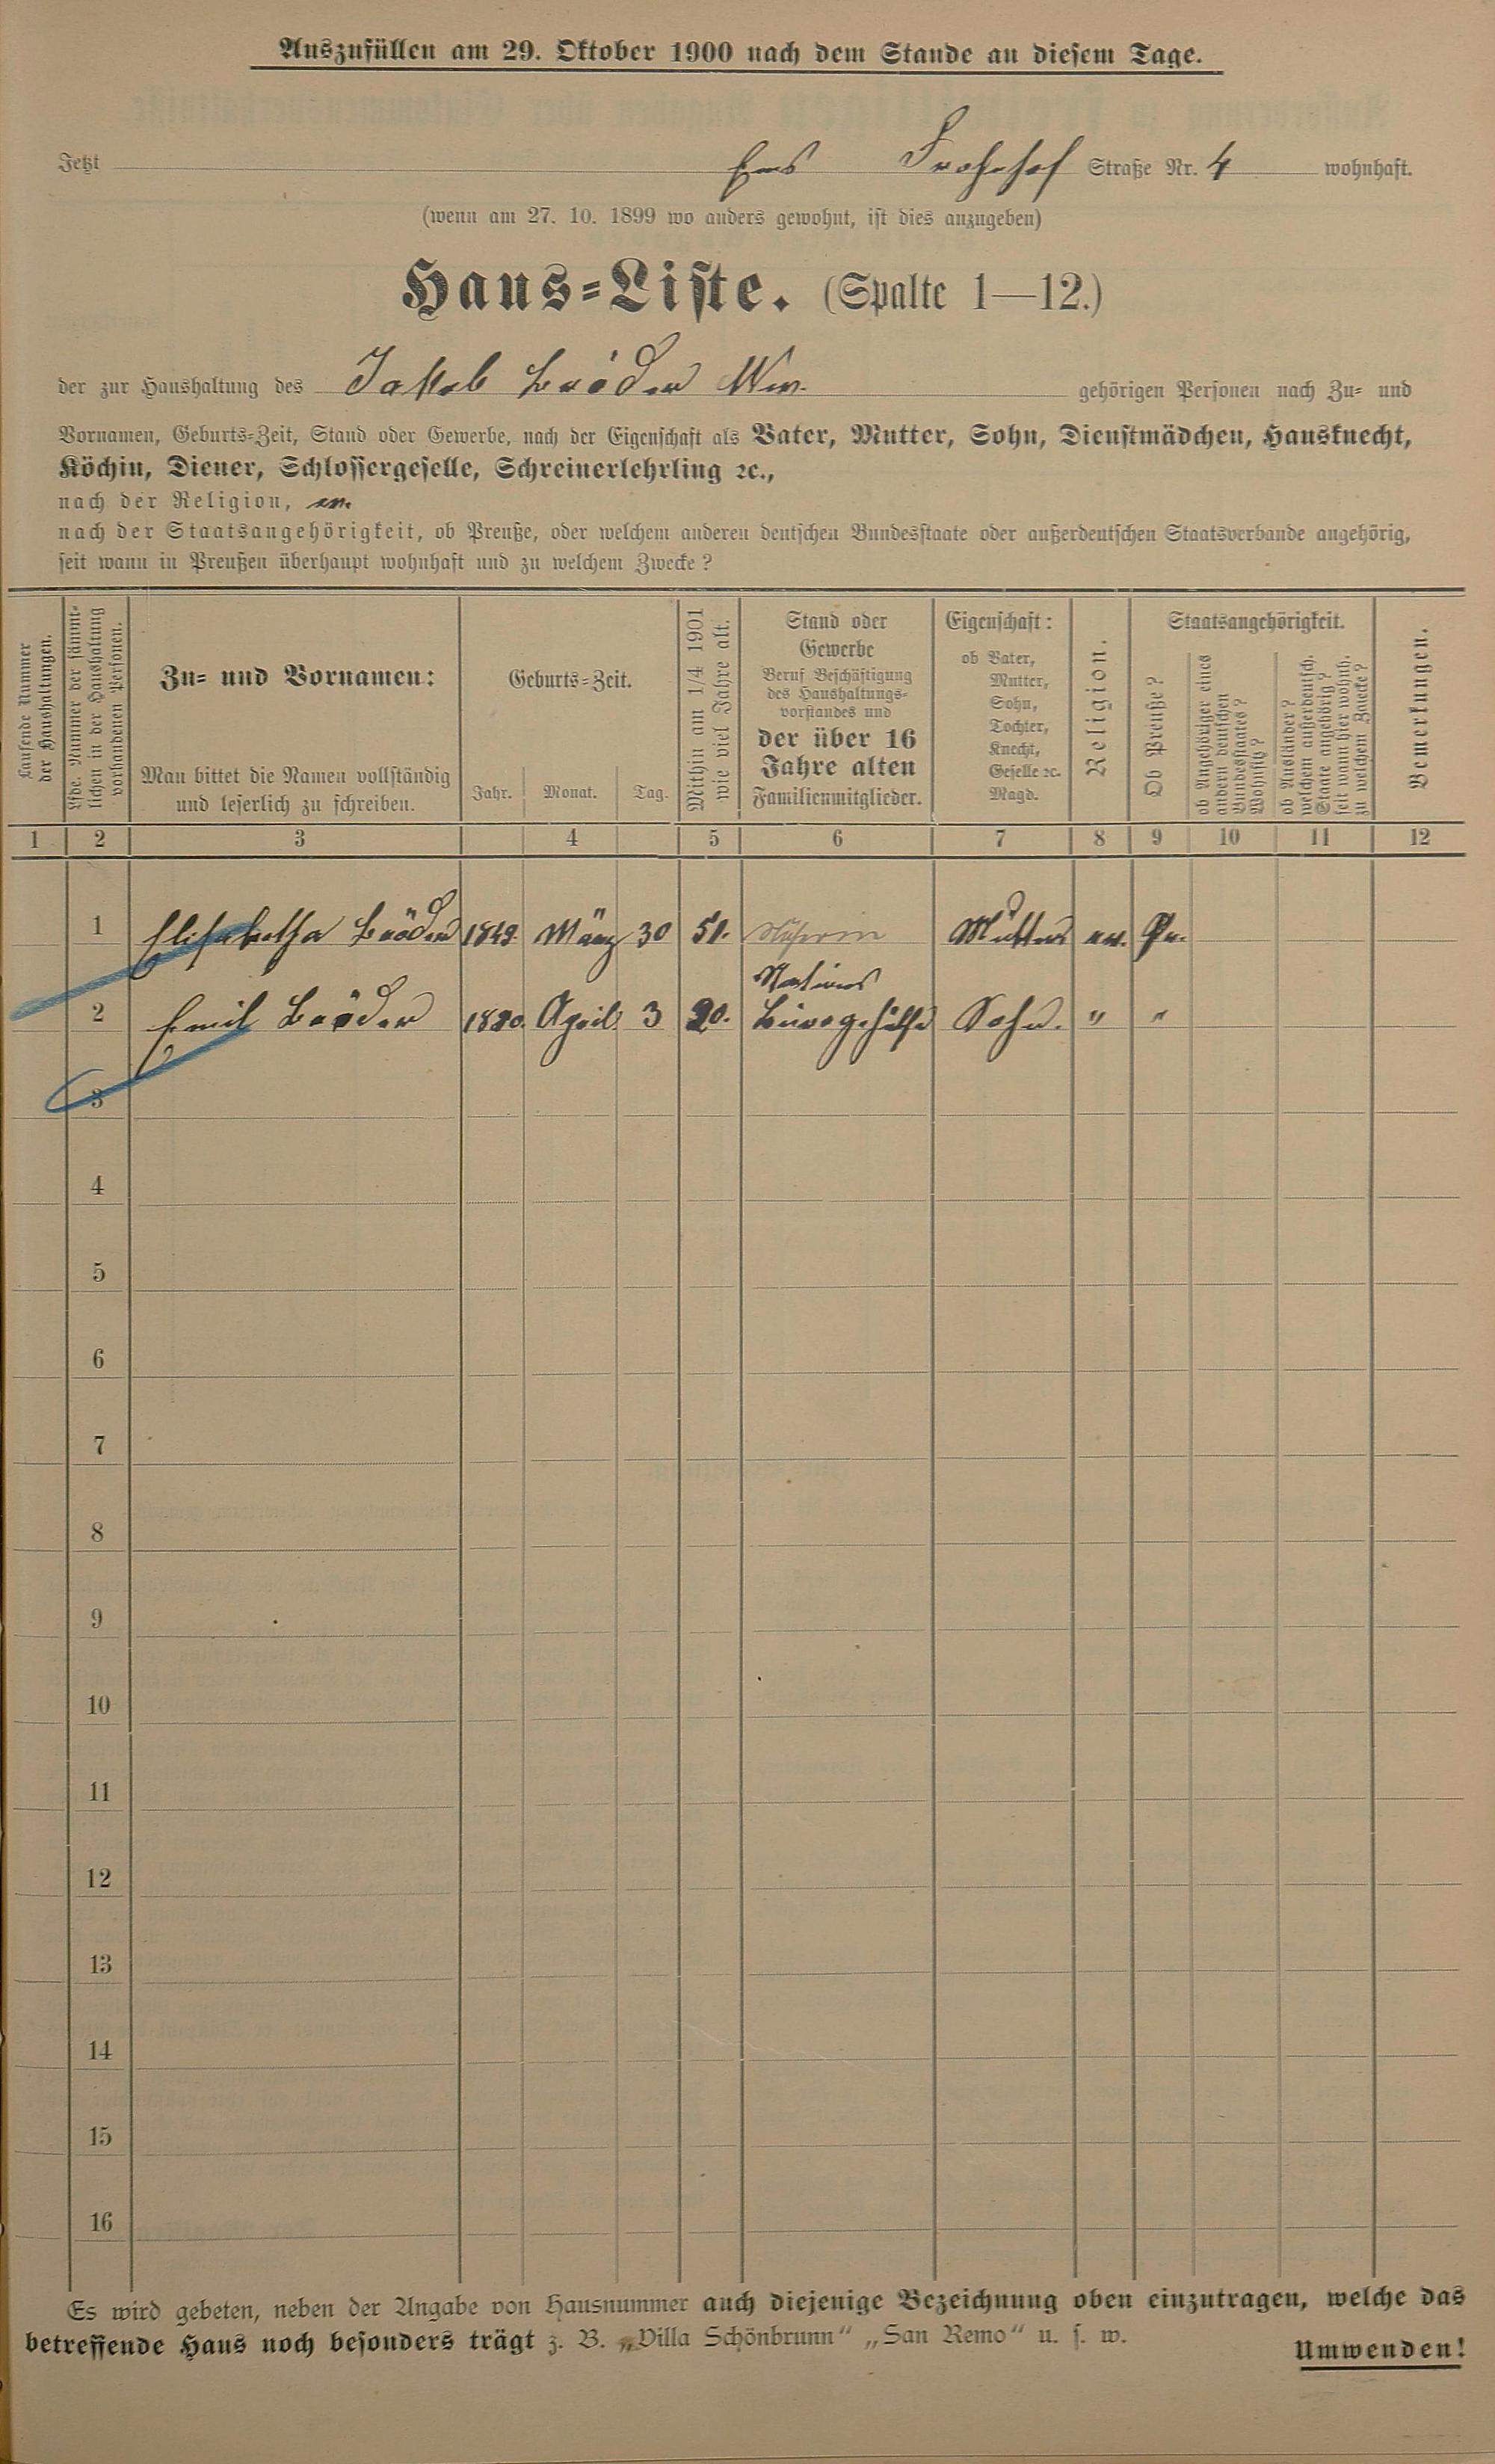 Auszufüllen am 29. Oktober 1900 nach dem Stande an diesem Tage.
Jetzt Ems Frohnhof Straße Nr. 4 wohnhaft.
(wenn am 27. 10. 1899 wo anders gewohnt, ist dies anzugeben)
Haus-Liste. (Spalte 1—12.)
der zur Haushaltung des Jakob Bröder Ww. gehörigen Personen nach Zu- und
Vornamen, Geburts-Zeit, Stand oder Gewerbe, nach der Eigenschaft als Vater, Mutter, Sohn, Dienstmädchen, Hausknecht,
Köchin, Diener, Schlossergeselle, Schreinerlehrling ꝛc.,
nach der Religion, ev.
nach der Staatsangehörigkeit, ob Preuße, oder welchem anderen deutschen Bundesstaate oder außerdeutschen Staatsverbande angehörig,
seit wann in Preußen überhaupt wohnhaft und zu welchem Zwecke?
Laufende Nummer
der Haushaltungen.
Lfde. Nummer der sämmt-
lichen in der Haushaltung
vorhandenen Personen.
Zu- und Vornamen:
Man bittet die Namen vollständig
und leserlich zu schreiben.
Geburts-Zeit.
Jahr. Monat. Tag.
Mithin am 1/4 1901
wie viel Jahre alt.
Stand oder
Gewerbe
Beruf Beschäftigung
des Haushaltungs-
vorstandes und
der über 16
Jahre alten
Familienmitglieder.
Eigenschaft:
ob Vater,
Mutter,
Sohn,
Tochter,
Knecht,
Geselle ꝛc.
Magd.
Religion.
Staatsangehörigkeit.
Ob Preuße?
ob Angehöriger eines
andern deutschen
Bundesstaates?
Wohnsitz?
ob Ausländer?
welchem außerdeutsch.
Staate angehörig?
seit wann hier wohnh.
zu welchem Zwecke?
Bemerkungen.
1 2 3 4 5 6 7 8 9 10 11 12
1 Elisabetha Bröder 1849. März 30 51. Mutter ev. Pr.
2 Emil Bröder 1880. April 3 20. Bürogehülfe Sohn. " "
3
4
5
6
7
8
9
10
11
12
13
14
15
16
Es wird gebeten, neben der Angabe von Hausnummer auch diejenige Bezeichnung oben einzutragen, welche das
betreffende Haus noch besonders trägt z. B. „Villa Schönbrunn“ „San Remo“ u. s. w.
Umwenden!